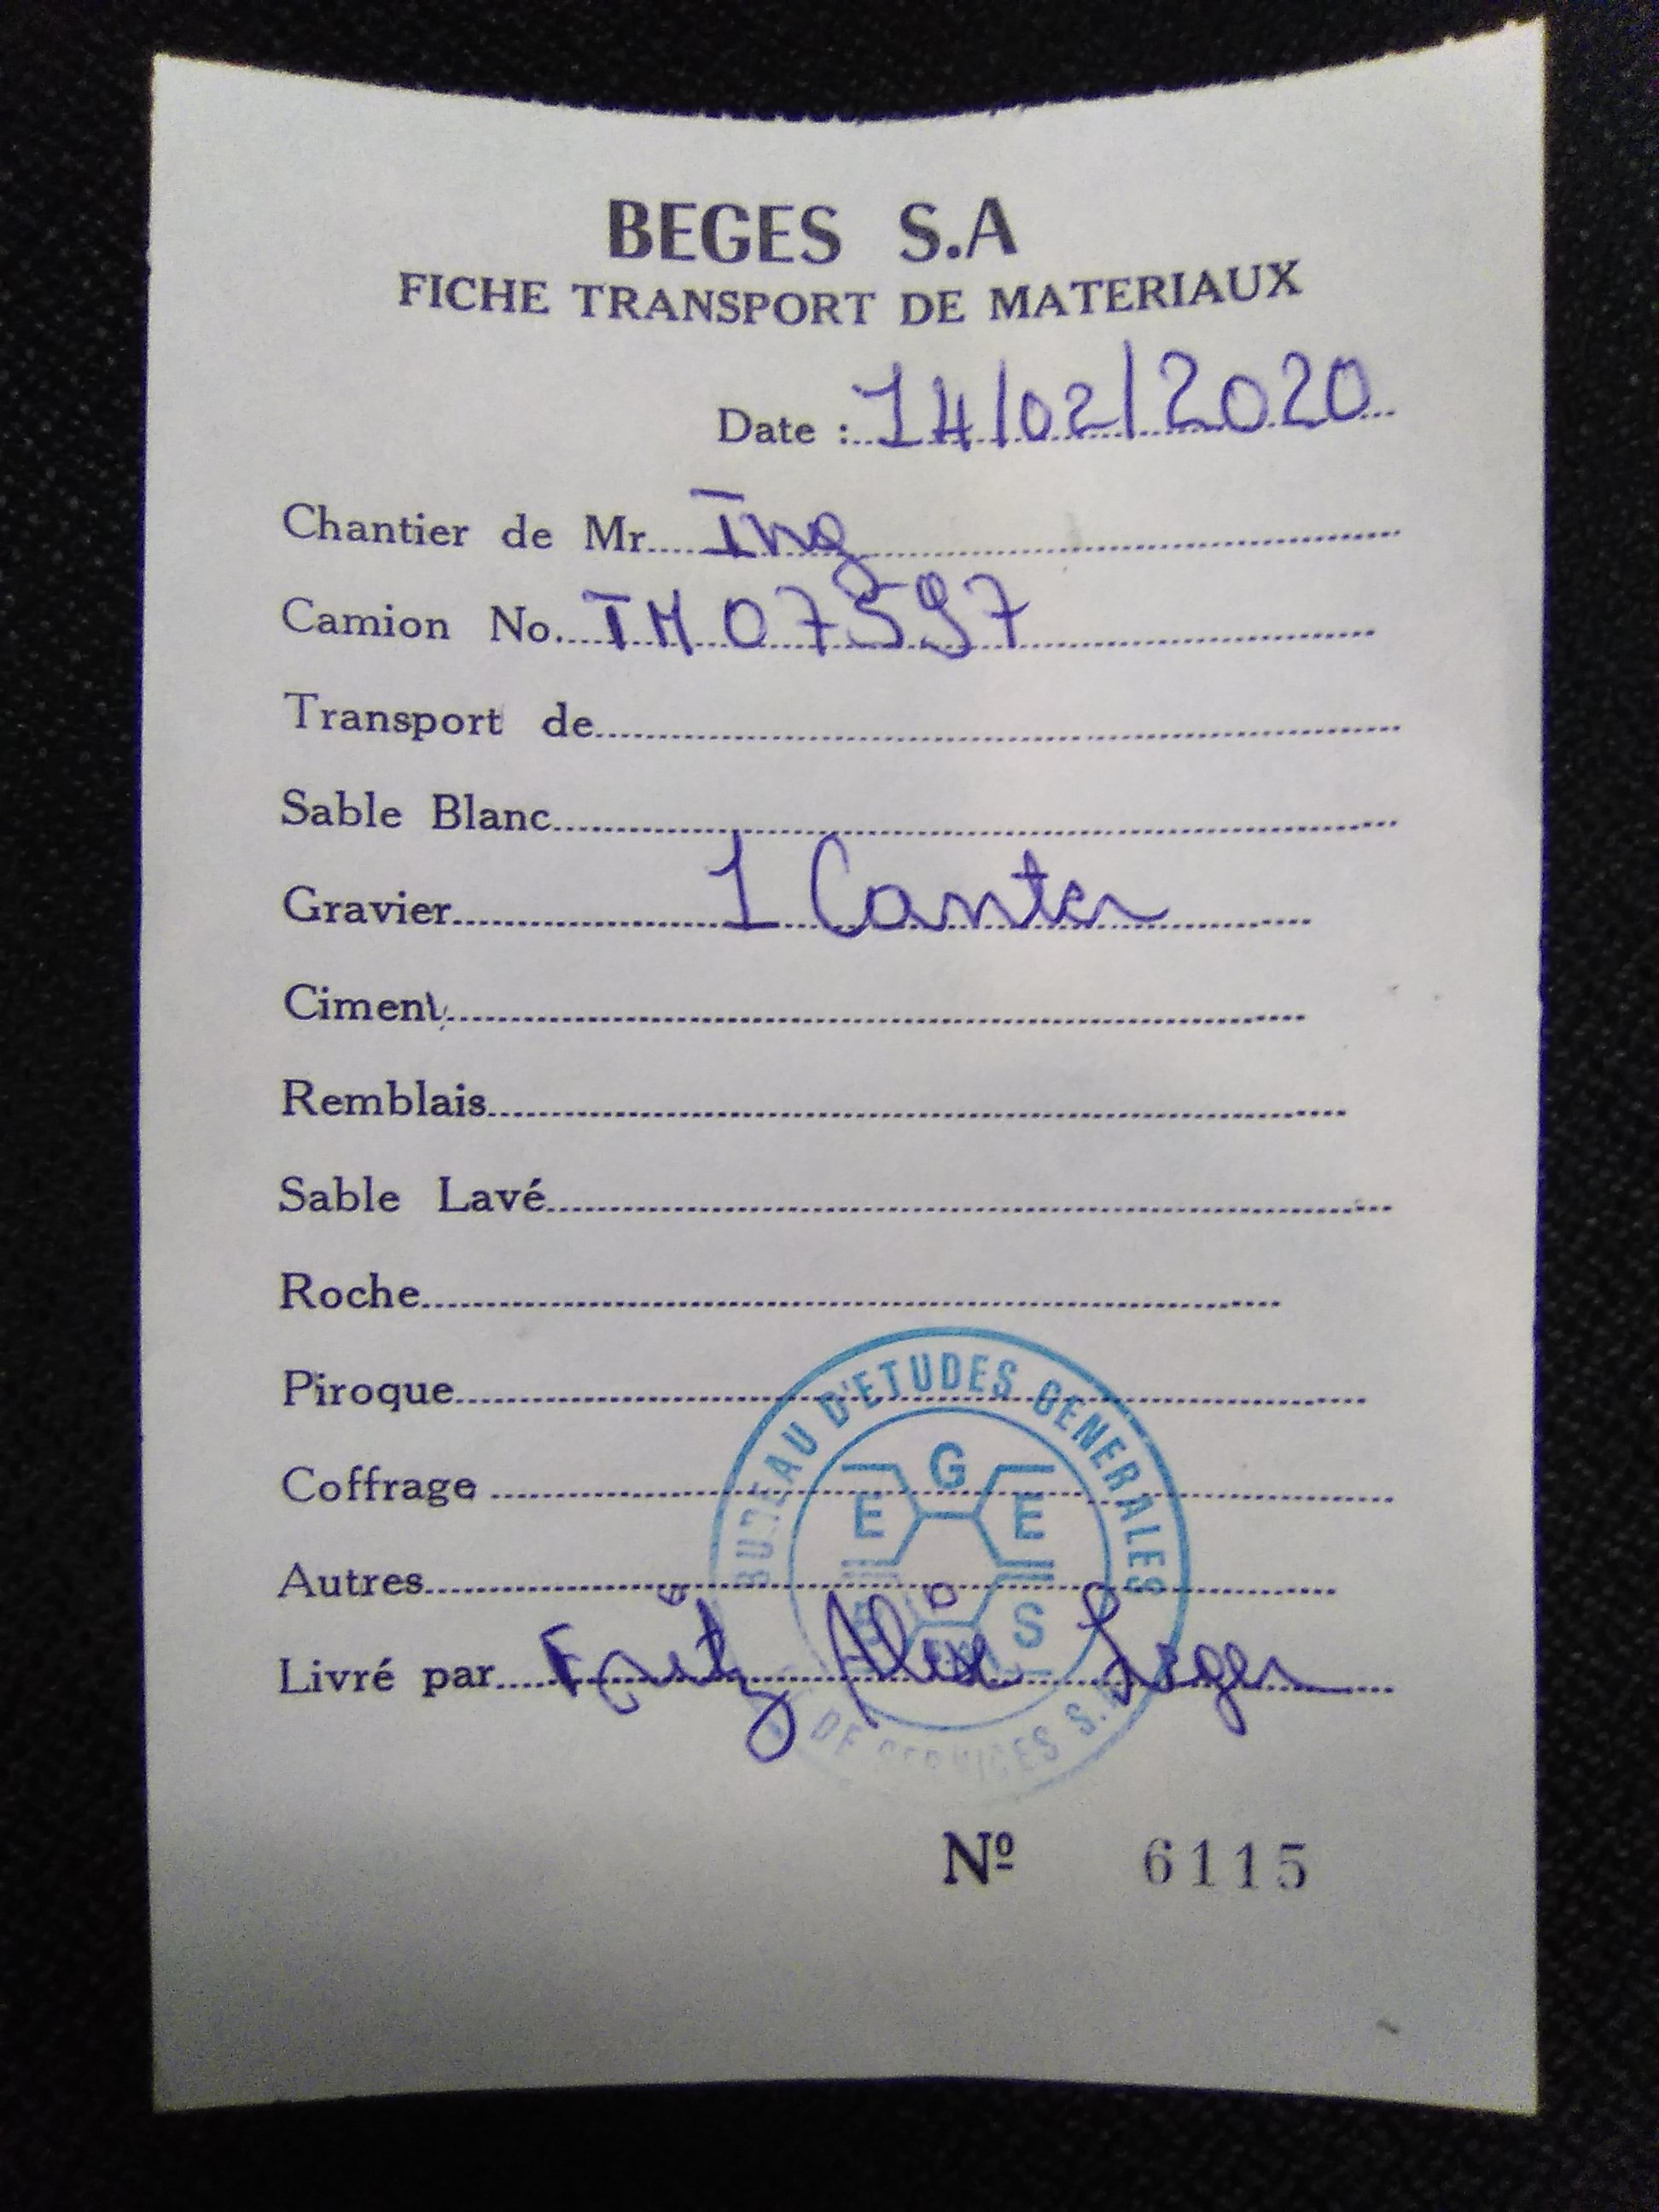 BEGES S.A
FICHE TRANSPORT DE MATERIAUX
Date : 14/02/2020
Chantier de Mr. Ing
Camion No. TM 07597
Transport de
Sable Blanc
Gravier 1 Canter
Ciment
Remblais
Sable Lavé
Roche
Piroque
Coffrage
Autres
Livré par Fritz Alix Leger
BUREAU D'ETUDES GENERALES
DE SERVICES S.A
G
E E
S
Nº 6115